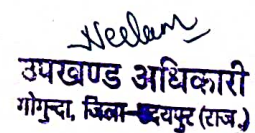 Neelam
उपखण्ड अधिकारी
गोगुन्दा, जिला-उदयपुर (राज.)